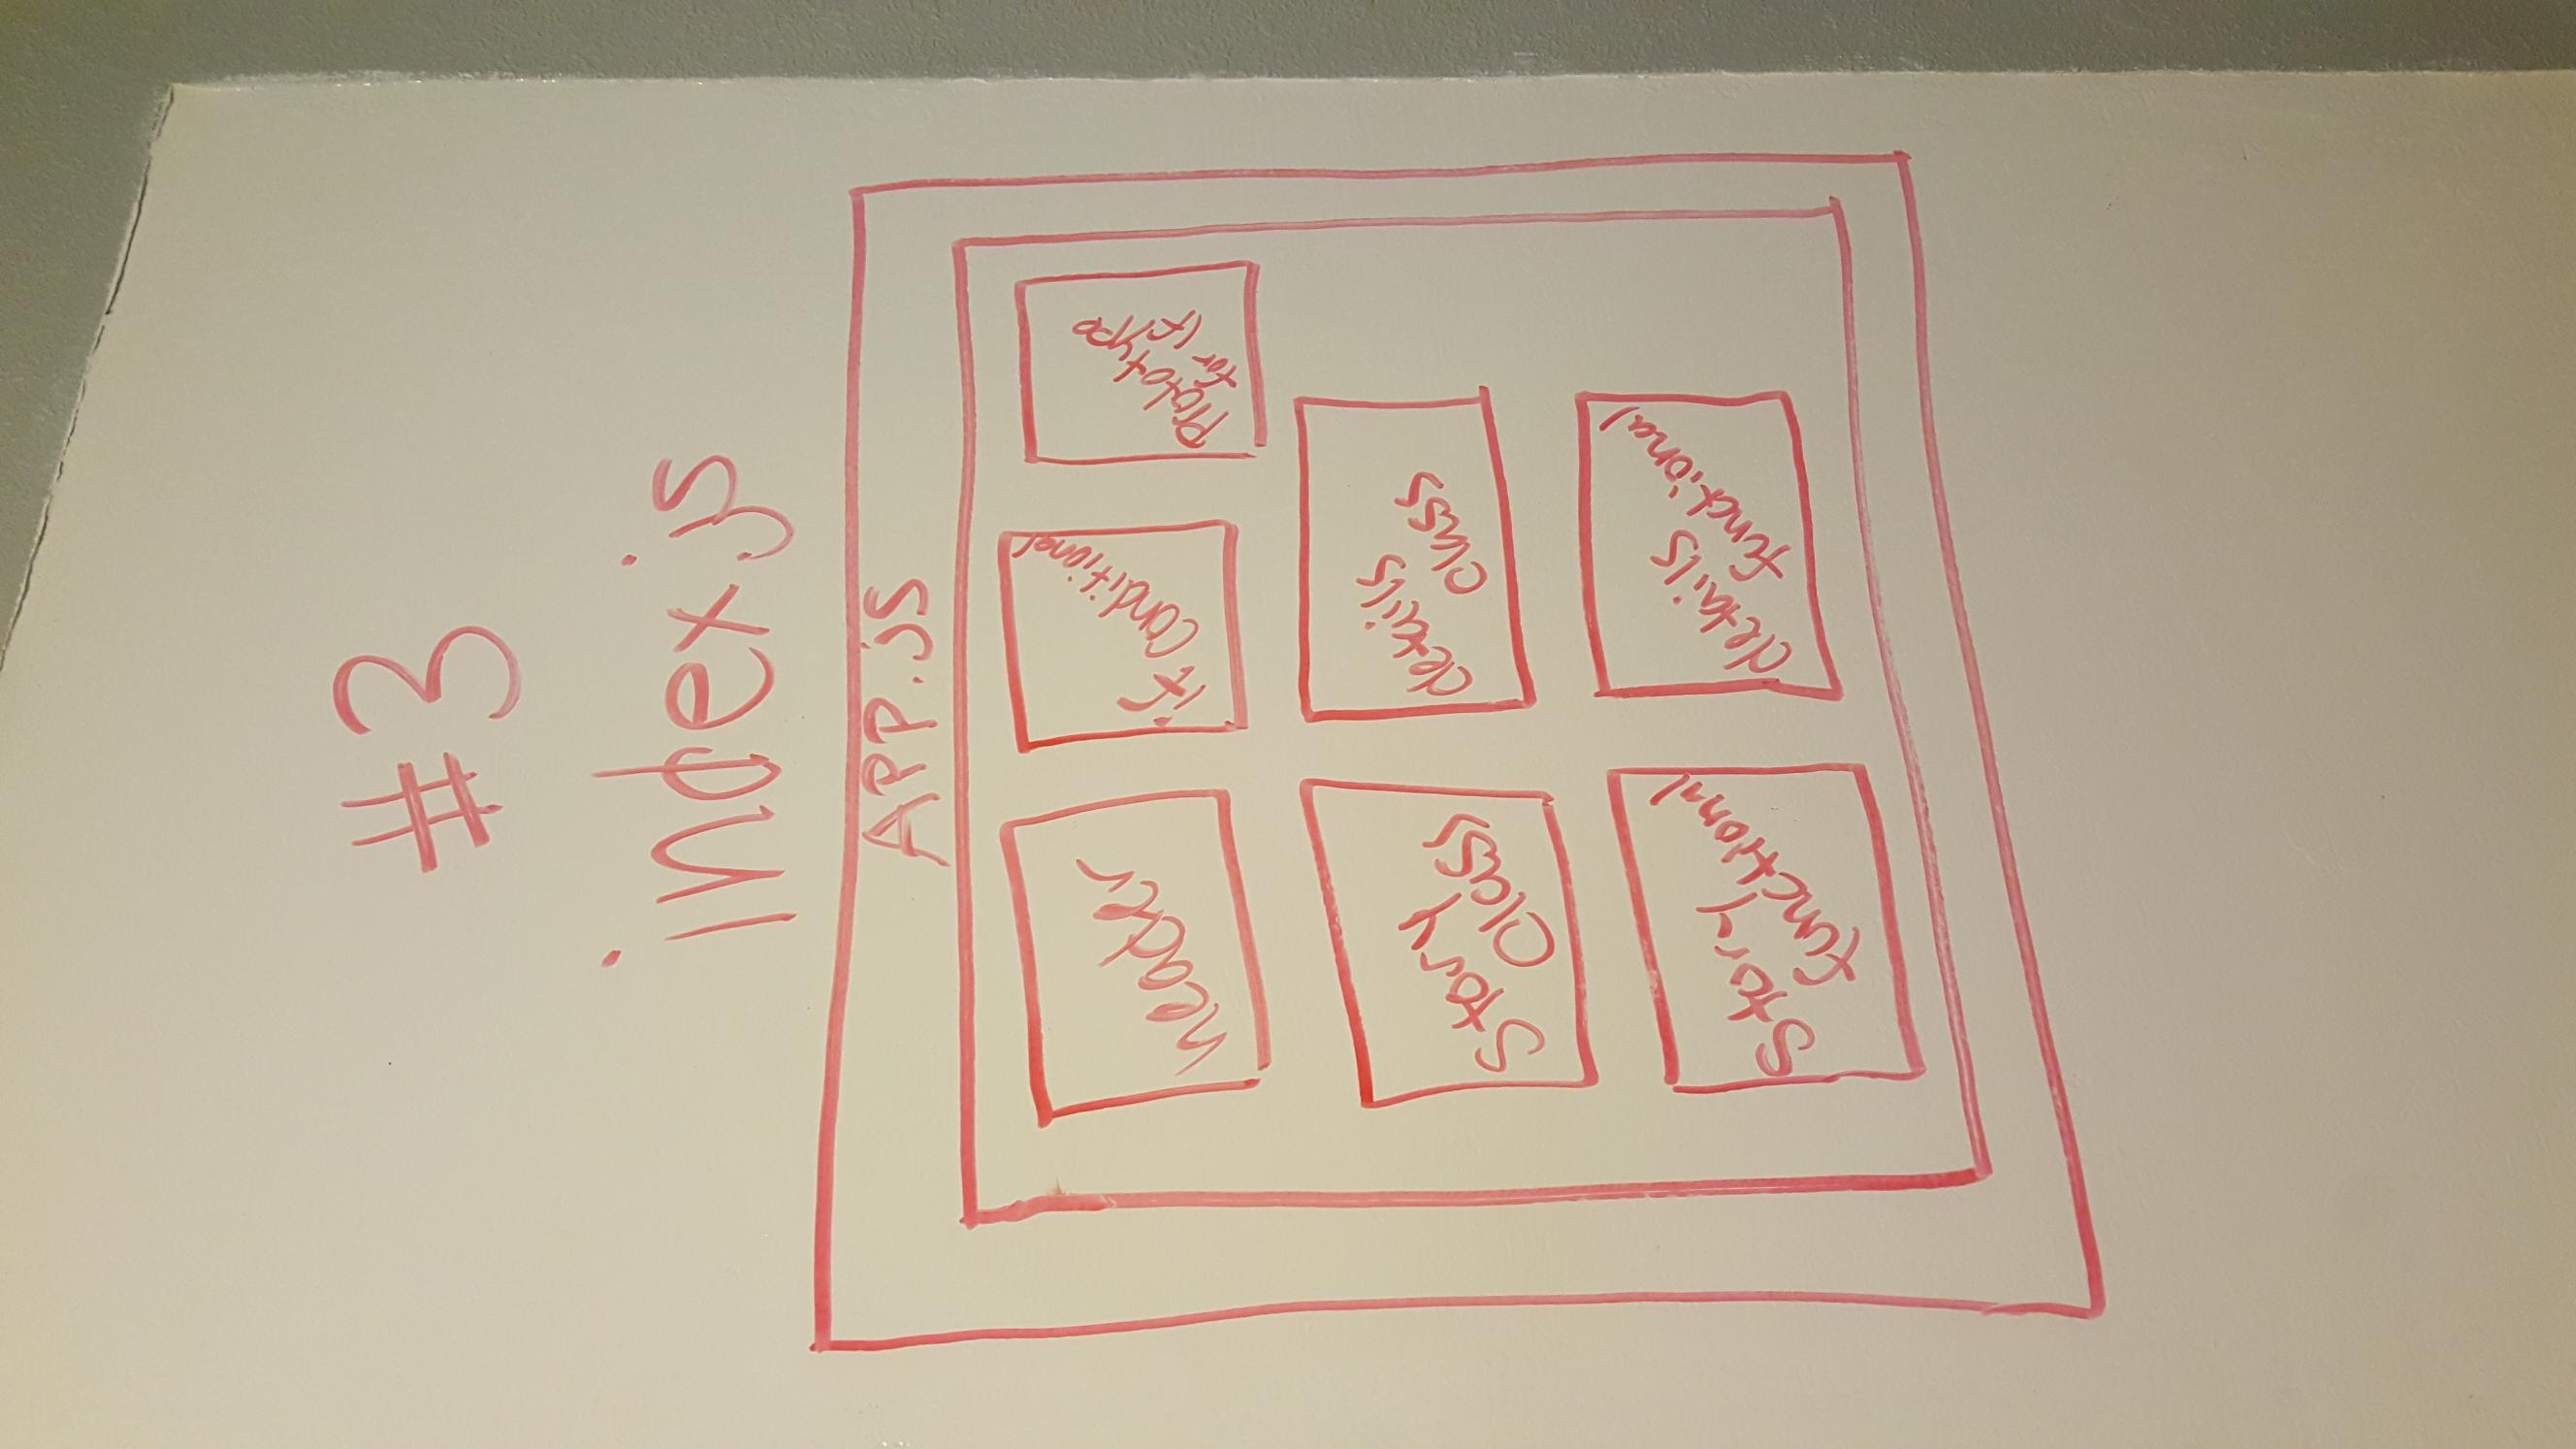 #3
index.js
APP.js
header
if conditional
Prototype
for if
Story
Class
details
class
Story
functional
details
functional